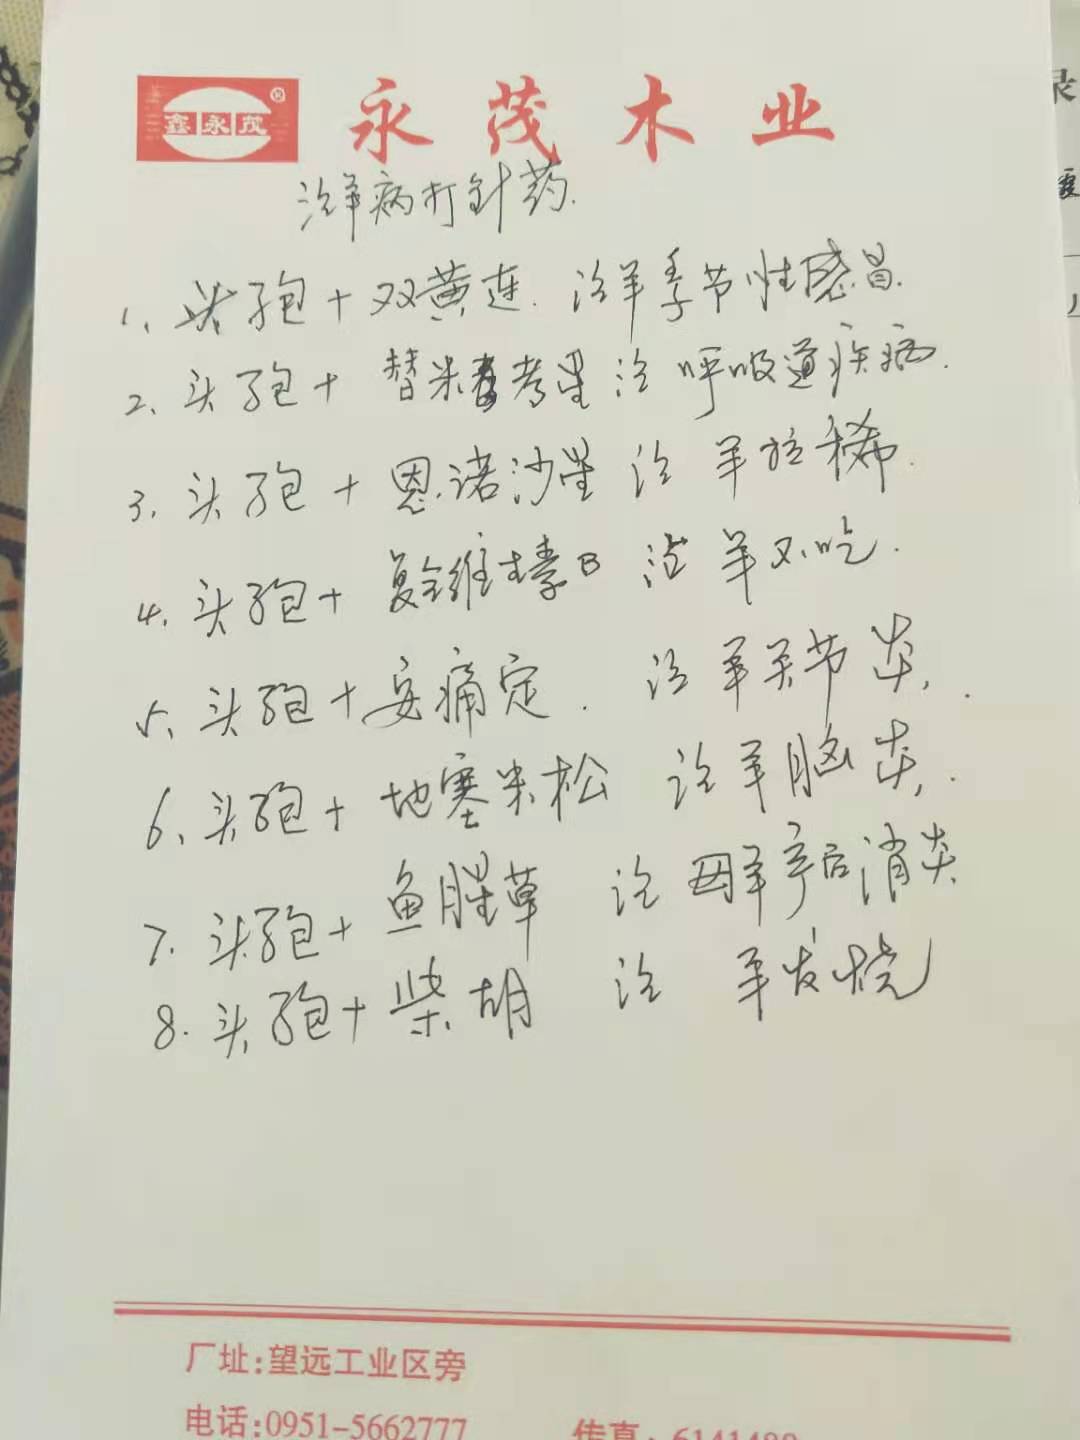 鑫永茂®
永茂木业
治羊病打针药.
1、头孢+双黄连. 治羊季节性感冒.
2、头孢+替米考星治呼吸道疾病.
3、头孢+恩诺沙星治羊拉稀.
4、头孢+复合维生素B治羊不吃.
5、头孢+安痛定.治羊关节炎.
6、头孢+地塞米松治羊脑炎.
7.头孢+鱼腥草治母羊产后消炎
8.头孢+柴胡治羊发烧
厂址:望远工业区旁
电话:0951-5662777 传真:6141488